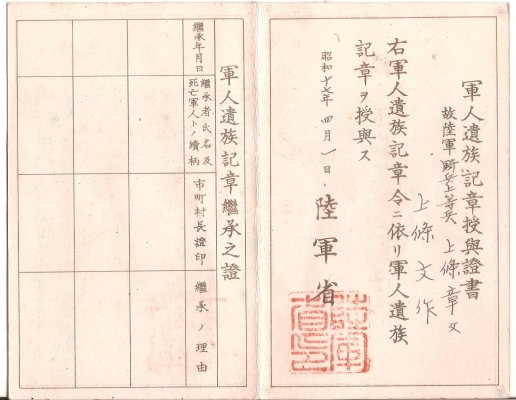 軍人遺族記章授與證書
故陸軍騎兵上等兵 上條章父
上條文作
右軍人遺族記章令ニ依リ軍人遺族
記章ヲ授與ス
昭和十七年四月一日
陸軍省
陸軍省印
軍人遺族記章繼承之證
繼承年月日
繼承者氏名及
死亡軍人トノ續柄
市町村長證印
繼承ノ理由